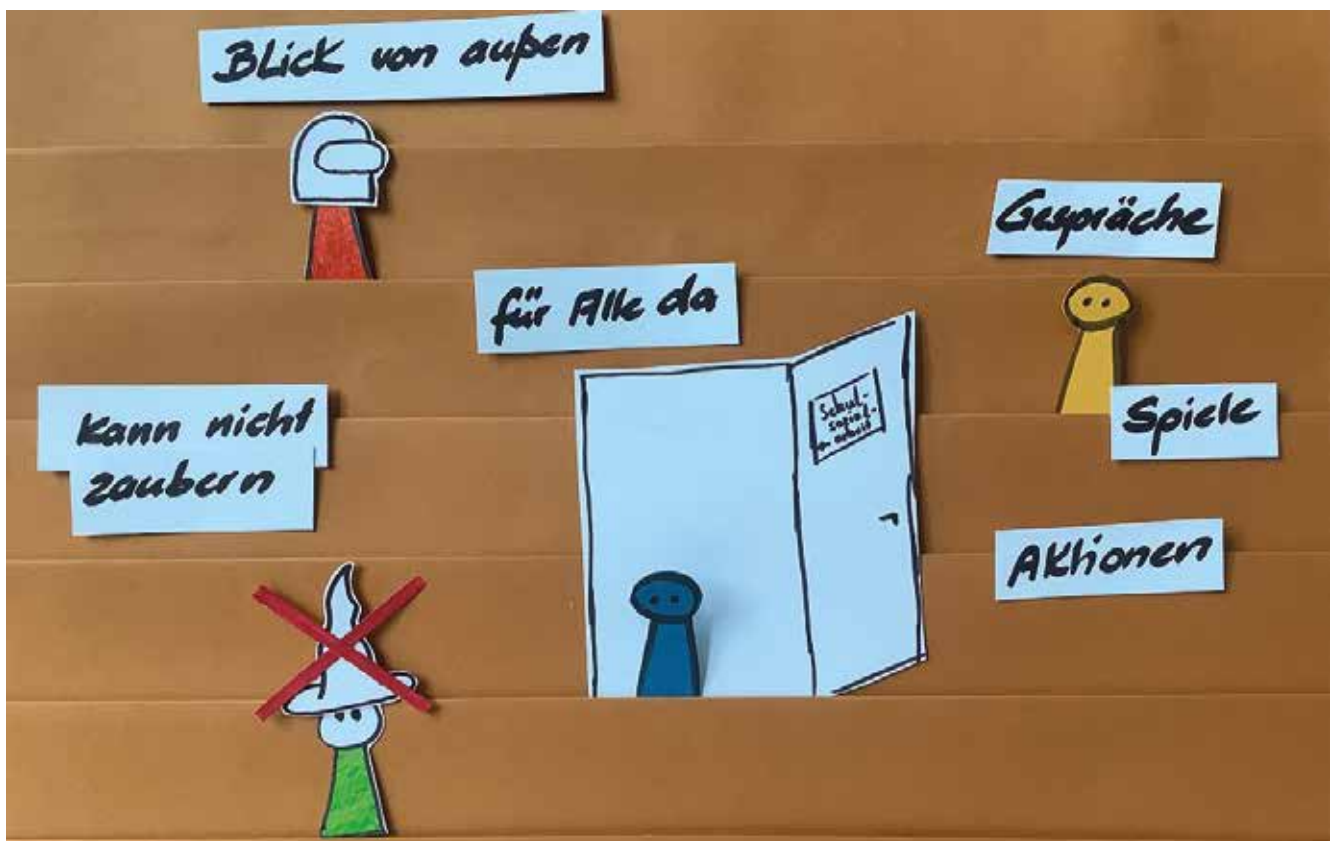 Blick von außen
Gespräche
für Alle da
Schul-
sozial-
arbeit
Kann nicht
zaubern
Spiele
Aktionen